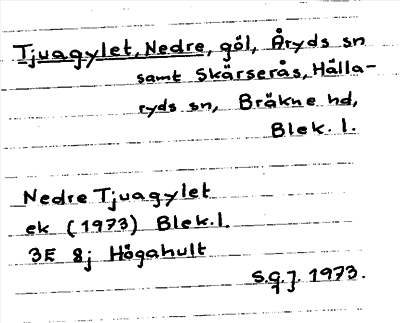 Tjuagylet, Nedre, göl, Åryds sn
samt Skärserås, Hälla-
ryds sn, Bräkne hd,
Blek. l.
Nedre Tjuagylet
ek (1973) Blek. l.
3E 8j Högahult
S.G.J. 1973.